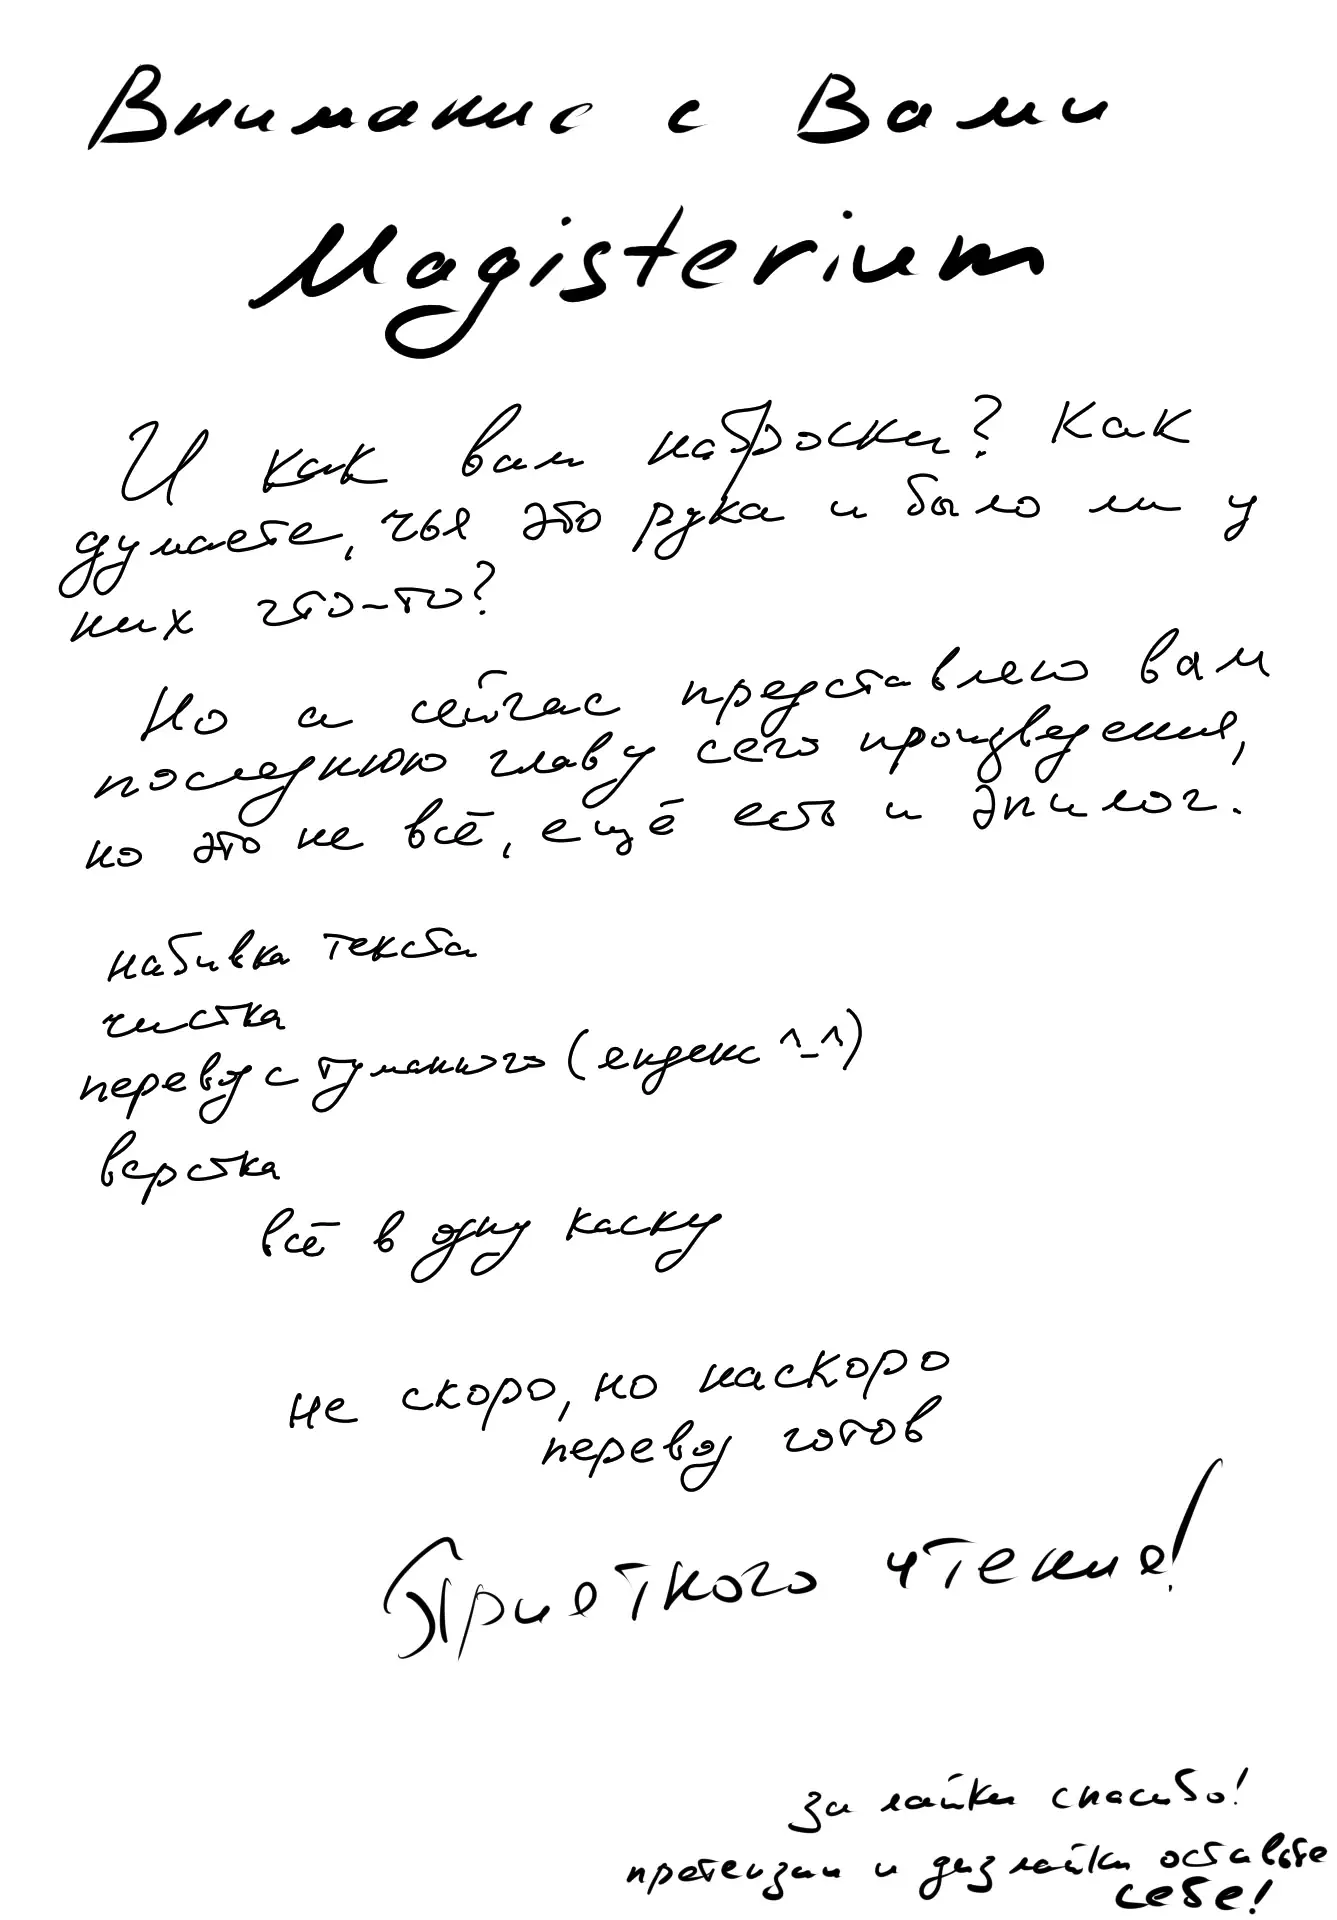 Внимание с Вами
Magisterium
И как вам наброски? Как
думаете, чья это рука и было ли у
них что-то?
Но а сейчас представлено вам
последнюю главу сего произведения,
но это не всё, ещё есть и эпилог.
набивка текста
чистка
перевод с туманного (яндекс ^_^)
верстка
всё в одну каску
не скоро, но наскоро
перевод готов
Приятного чтения!
за лайки спасибо!
претензии и дизлайки оставьте
себе!